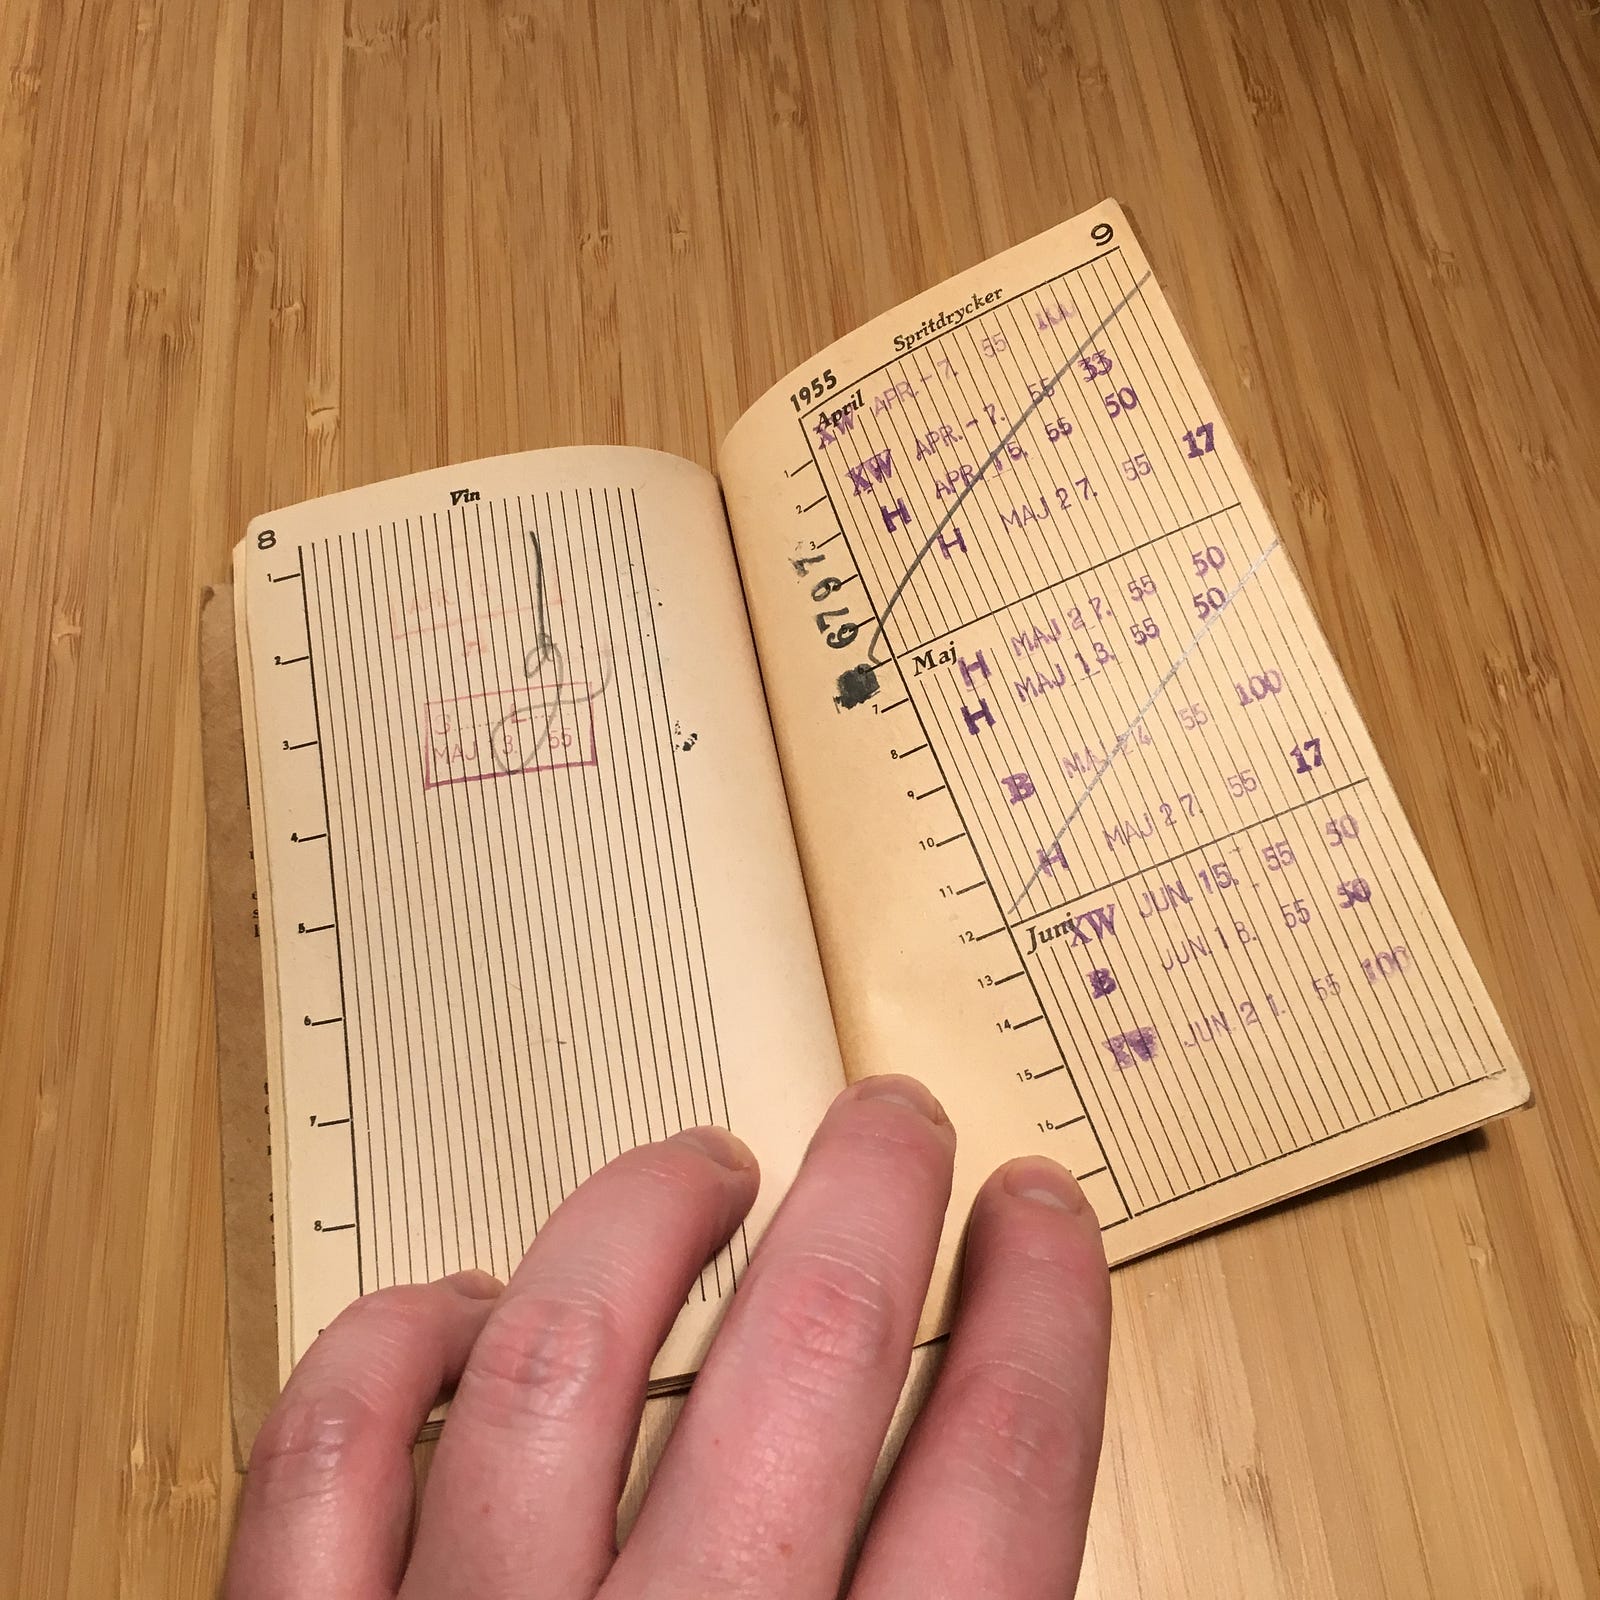 8
Vin
1
2
3
4
5
6
7
8
APR
MAJ 13. 55
9
Spritdrycker
1955
April
XW APR. - 7. 55 100
XW APR. - 7. 55 33
H APR. 15. 55 50
H MAJ 27. 55 17
6797
Maj
H MAJ 27. 55 50
H MAJ 13. 55 50
B MAJ 24 55 100
H MAJ 27. 55 17
Juni
XW JUN. 15. 55 50
B JUN. 18. 55 50
XW JUN. 21. 55 100
1
2
3
7
8
9
10
11
12
13
14
15
16